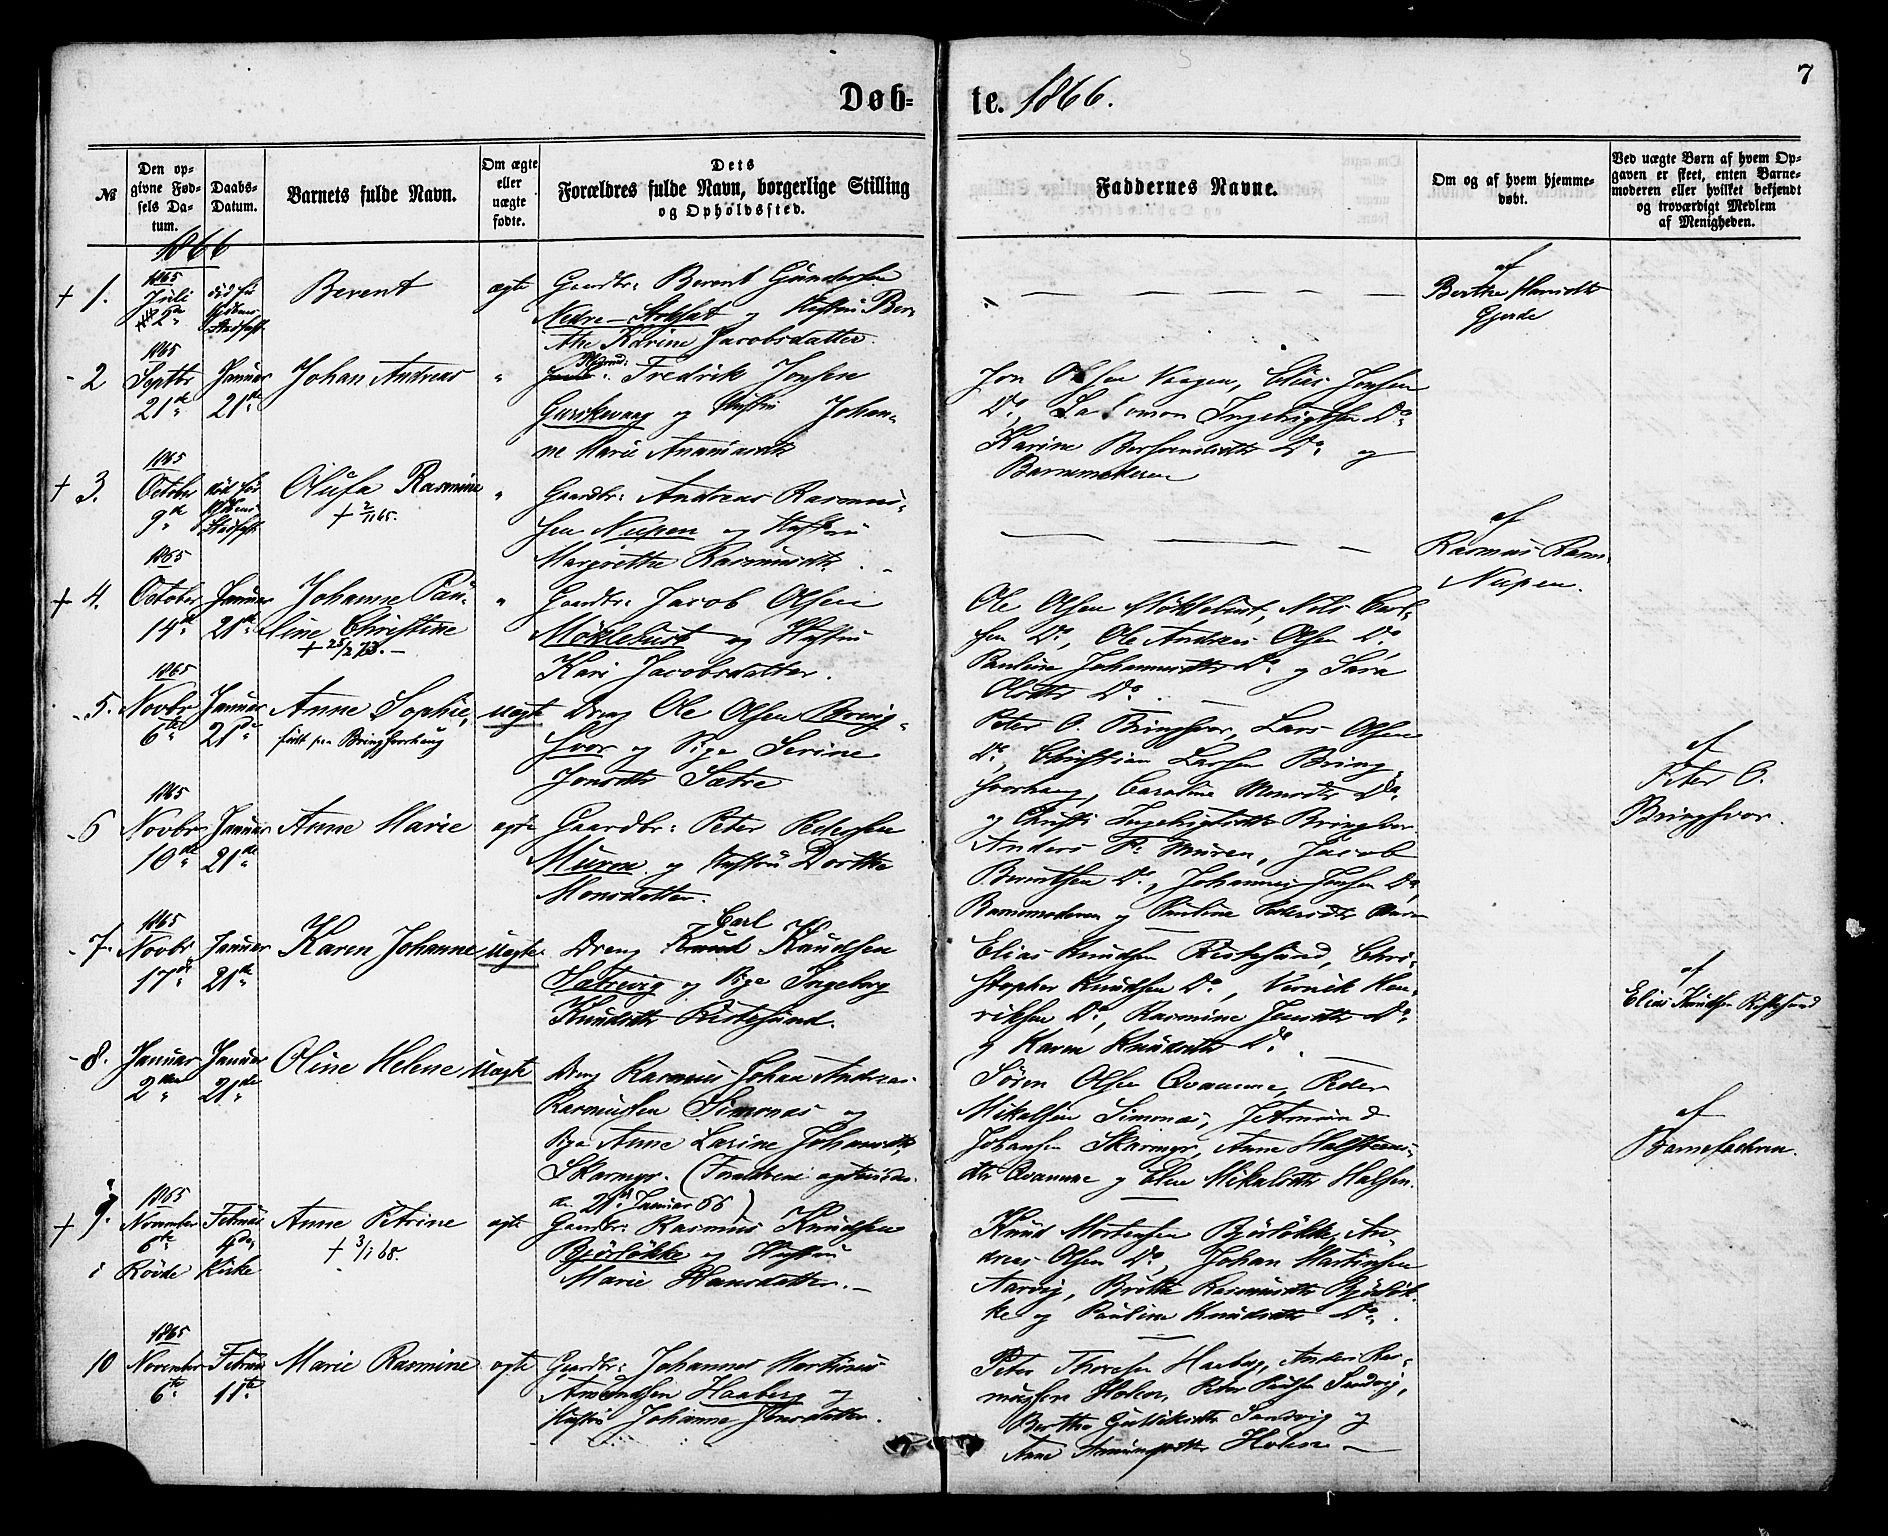 7
Døb-
te. 1866.
№
Den op-
givne Fød-
sels Da-
tum.
Daabs-
Datum.
Barnets fulde Navn.
Om ægte
eller
uægte
fødte.
Dets
Forældres fulde Navn, borgerlige Stilling
og Opholdssted.
Faddernes Navne.
Om og af hvem hjemme-
døbt.
Ved uægte Børn af hvem Op-
gaven er skeet, enten Barne-
moderen eller hvilket bekjendt
og troværdigt Medlem
af Menigheden.
1866
+ 1.
1865
Juli
2de
død før
Stadfest
Berent
ægte
Gaardbr: Berent Gundersen
Nedre-Stokset og Hustru Ber-
the Karine Jacobsdatter.
af
Berthe
Gjerde
- 2
1865
Septbr
21de
Januar
21de
Johan Andreas
"
Fredrik Jonsen
Gurskevaag og Hustru Johan-
ne Marie
Jon Olsen Vaagen, Elias Jonsen
Do, Salomon Ingebrigtsen Do
Karine Do og
Barnemoderen
+ 3.
1865
October
9de
død før
Stadfest
Olufa Rasmine
+ 2/11 65.
"
Gaardbr: Andreas Rasmus-
sen Nupen og Hustru
Margrethe Rasmusdtr.
af
Rasmus Rasm.
Nupen.
+ 4.
1865
October
14de
Januar
21de
Johanne Pau-
line Christine
+ 25/2 73.-
"
Gaardbr: Jacob Olsen
Möklebust og Hustru
Kari Jacobsdatter.
Ole Olsen Möklebust, Nils Carl-
sen Do, Ole Andreas Olsen Do,
Pauline Johannesdtr Do og Sara
Olsdtr Do.
- 5.
1865
Novbr
6te
Januar
21de
Anne Sophie,
født paa Bringsvorhaug
Uægte
Dreng Ole Olsen Bring-
svor og Pige Serine
Jonsdtr Sætre
Peter O. Bringsvor, Lars Olsen
Do, Christian Larsen Bring-
svorhaug, Caroline Monsdtr Do
og Ingebrigtsdtr Bringsvor.
af
Peter O.
Bringsvor.
- 6
1865
Novbr
10de
Januar
21de
Anne Marie
ægte
Gaardbr: Peter Pedersen
Muren og Hustru Dorthe
Monsdatter.
Anders P. Muren, Jacob
Berentsen Do, Johannes Jensen Do,
Barnemoderen og Pauline Pedersdtr
- 7.
1865
Novbr
17de
Januar
21de
Karen Johanne
Uægte
Carl
Dreng Knud Knudsen
Sætrevig og Pige Ingeborg
Knudsdtr Röstesund.
Elias Knudsen Röstesund, Chri-
stopher Knudsen Do, Vernik Hen-
riksen Do, Rasmine Jensdtr Do
og Karen Knudsdtr Do.
af
Elias Knudsen Röstesund
- 8.
Januar
2den
Januar
21de
Oline Helene
Uægte
Dreng Rasmus Johan Andreas
Rasmussen Simonæs og
Pige Anne Larine Johansdtr
Skarmyr. (Forældrene
21de Januar 66)
Sören Olsen Qvamme, Peder
Mikalsen Simonæs, Jetmund
Johansen Skarmyr, Anne Halsteins-
dtr Qvamme og Elen Mikalsdtr Halsen.
af
Barnefaderen.
+ 9.
1865
November
6te
i Rövde
Februar
4de
Kirke
Anne Petrine
+ 3/1 68.
ægte
Gaardbr: Rasmus Knudsen
Björlökke og Hustru
Marie Hansdatter.-
Knud Mortensen Björlökke, An-
dreas Olsen Do, Johan Martinsen
Aarvig, Brithe Rasmusdtr Björlök-
ke og Pauline Knudsdtr Do.
10
1865
November
6te
Februar
11te
Marie Rasmine
ægte
Gaardbr: Johannes Martinus
Amundsen Haaberg og
Hustru Johanne Jonsdatter.
Peter Thoresen Haaberg, Anders Ras-
mussen Holen, Peter Sandvig,
Berthe Sandvig og
Anne Amundsdtr Holen -